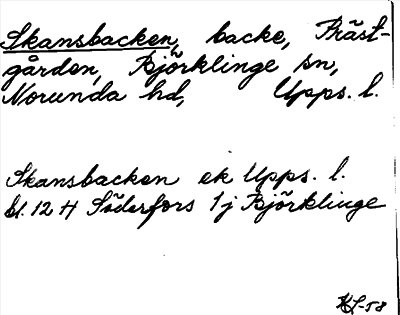 Skansbacken, backe, Präst-
gården, Björklinge sn,
Norunda hd, Upps. l.
Skansbacken ek Upps. l.
bl. 12 H Söderfors 1j Björklinge
HL-58